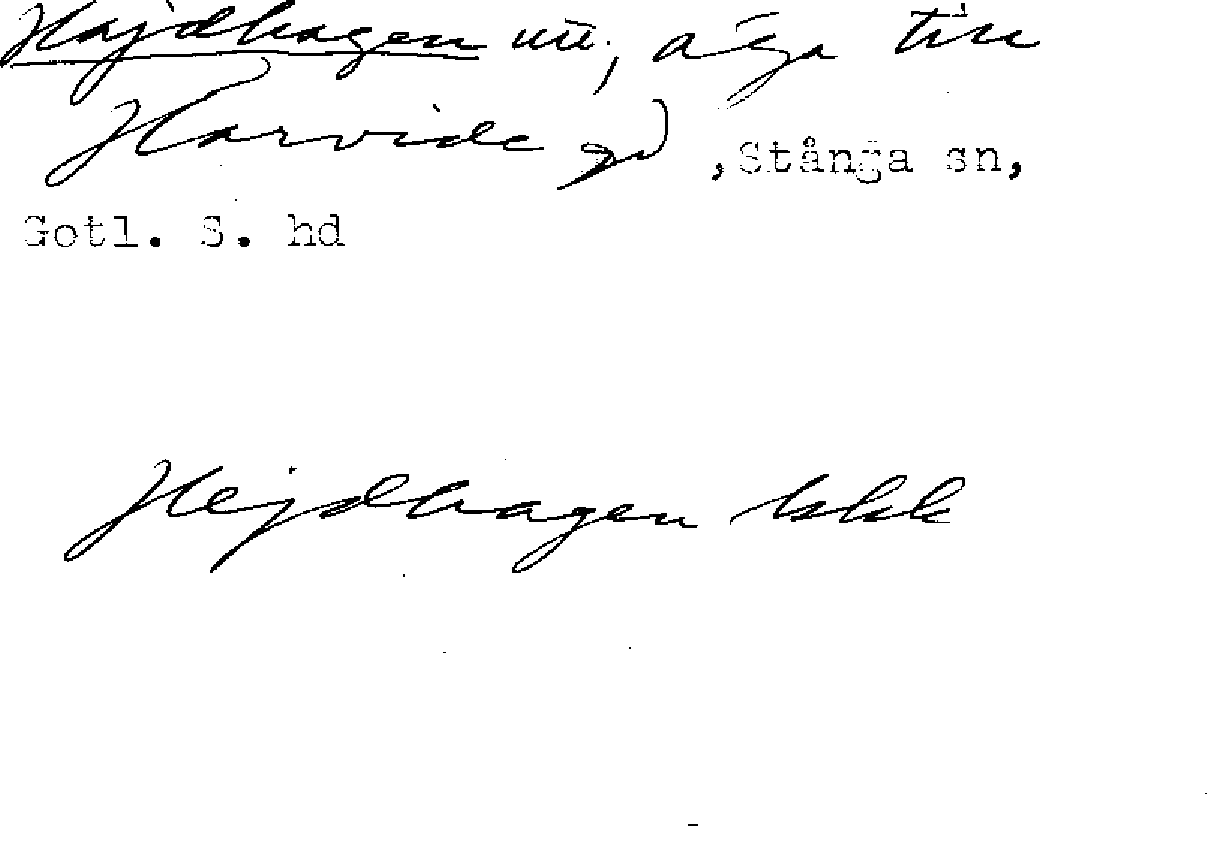 Hajdhagen uü, äga till
Harvide gd, Stånga sn,
Gotl. S. hd
Hejdhagen